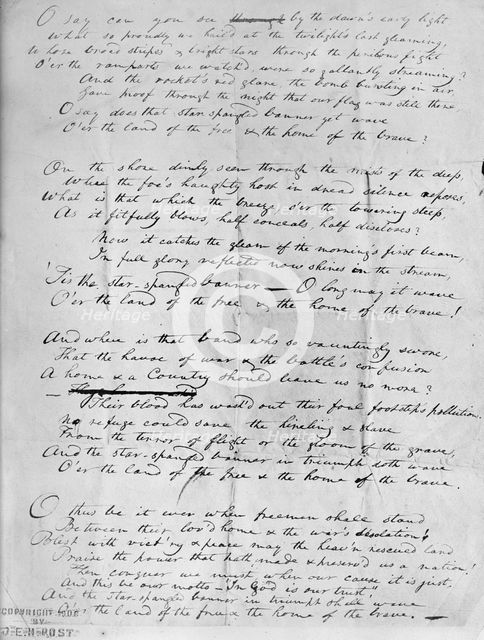 O say can you see through by the dawn's early light
What so proudly we hail'd at the twilight's last gleaming,
Whose broad stripes & bright stars through the perilous fight
O'er the ramparts we watch'd, were so gallantly streaming?
And the rocket's red glare, the bomb bursting in air,
Gave proof through the night that our flag was still there
O say does that star-spangled banner yet wave
O'er the land of the free & the home of the brave?
On the shore dimly seen through the mists of the deep,
Where the foe's haughty host in dread silence reposes,
What is that which the breeze, o'er the towering steep,
As it fitfully blows, half conceals, half discloses?
Now it catches the gleam of the morning's first beam,
In full glory reflected now shines in the stream,
'Tis the star-spangled banner — O long may it wave
O'er the land of the free & the home of the brave!
And where is that band who so vauntingly swore,
That the havoc of war & the battle's confusion
A home & a Country should leave us no more?
—
Their blood has wash'd out their foul footsteps pollution.
No refuge could save the hireling & slave
From the terror of flight or the gloom of the grave,
And the star-spangled banner in triumph doth wave
O'er the land of the free & the home of the brave.
O thus be it ever when freemen shall stand
Between their lov'd home & the war's desolation!
Blest with vict'ry & peace may the heav'n rescued land
Praise the power that hath made & preserv'd us a nation!
Then conquer we must, when our cause it is just,
And this be our motto — "In God is our trust,"
And the star-spangled banner in triumph shall wave
O'er the land of the free & the home of the brave. —
COPYRIGHT 1908
BY
J.E.H. POST
Heritage
Heritage
Images